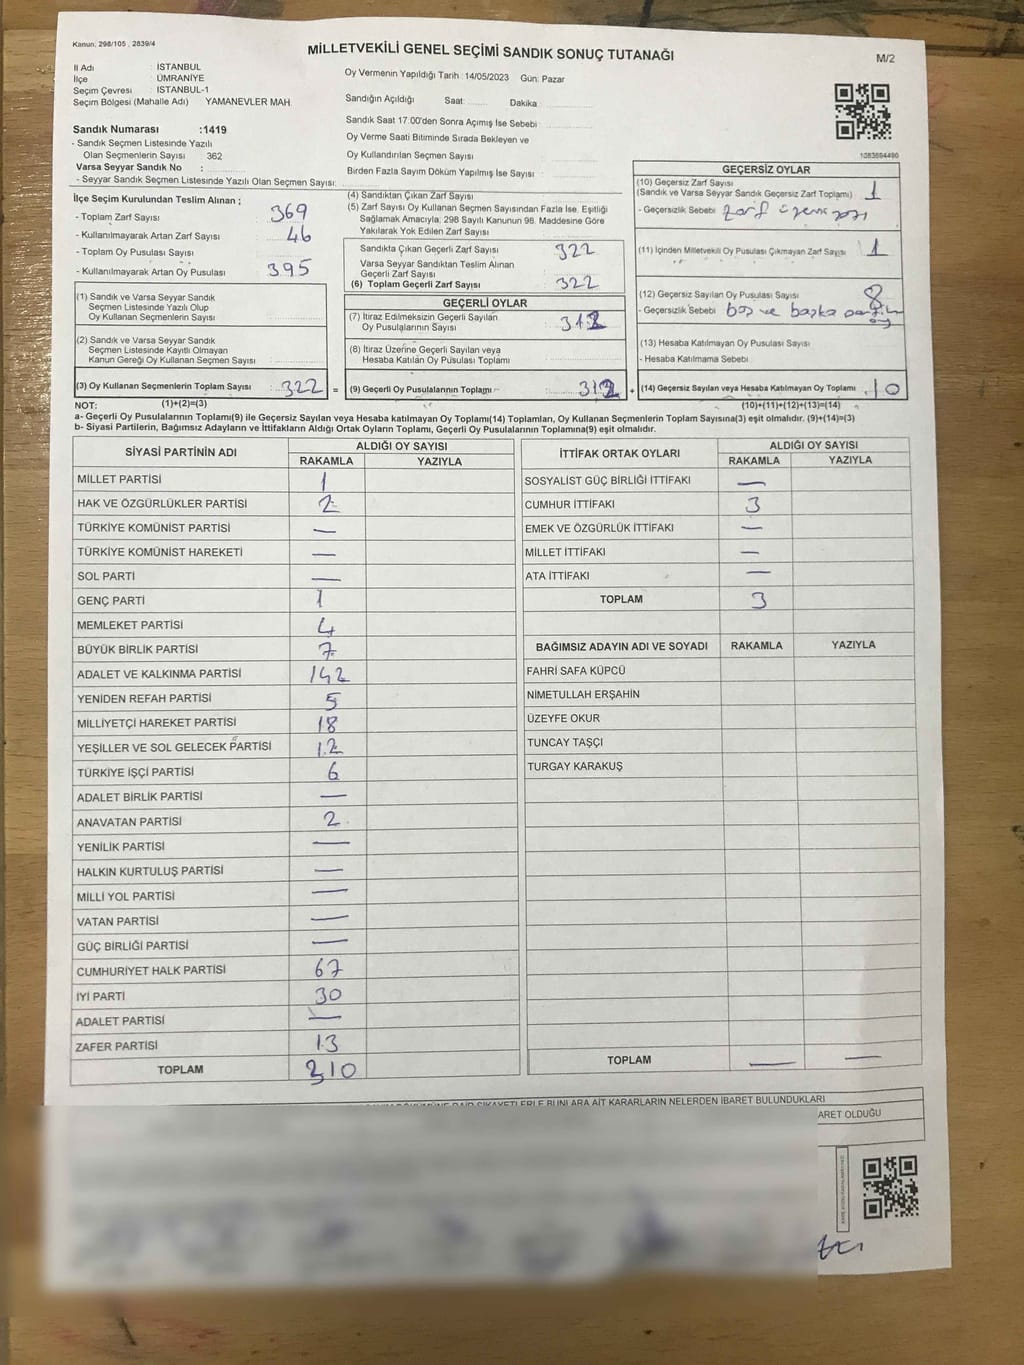 Kanun: 298/105 , 2839/4
MİLLETVEKİLİ GENEL SEÇİMİ SANDIK SONUÇ TUTANAĞI
M/2
İl Adı : İSTANBUL
İlçe : ÜMRANİYE
Seçim Çevresi : İSTANBUL-1
Seçim Bölgesi (Mahalle Adı) YAMANEVLER MAH.
Sandık Numarası :1419
- Sandık Seçmen Listesinde Yazılı
Olan Seçmenlerin Sayısı : 362
Varsa Seyyar Sandık No :
- Seyyar Sandık Seçmen Listesinde Yazılı Olan Seçmen Sayısı:
Oy Vermenin Yapıldığı Tarih :14/05/2023 Gün: Pazar
Sandığın Açıldığı Saat: Dakika:
Sandık Saat 17.00'den Sonra Açılmış İse Sebebi:
Oy Verme Saati Bitiminde Sırada Bekleyen ve
Oy Kullandırılan Seçmen Sayısı
Birden Fazla Sayım Döküm Yapılmış İse Sayısı :
1083694490
İlçe Seçim Kurulundan Teslim Alınan ;
- Toplam Zarf Sayısı : 369
- Kullanılmayarak Artan Zarf Sayısı : 46
- Toplam Oy Pusulası Sayısı :
- Kullanılmayarak Artan Oy Pusulası : 395
(1) Sandık ve Varsa Seyyar Sandık
Seçmen Listesinde Yazılı Olup
Oy Kullanan Seçmenlerin Sayısı :
(2) Sandık ve Varsa Seyyar Sandık
Seçmen Listesinde Kayıtlı Olmayan
Kanun Gereği Oy Kullanan Seçmen Sayısı :
(3) Oy Kullanan Seçmenlerin Toplam Sayısı : 322 =
(4) Sandıktan Çıkan Zarf Sayısı
(5) Zarf Sayısı Oy Kullanan Seçmen Sayısından Fazla İse, Eşitliği
Sağlamak Amacıyla; 298 Sayılı Kanunun 98. Maddesine Göre
Yakılarak Yok Edilen Zarf Sayısı
Sandıkta Çıkan Geçerli Zarf Sayısı : 322
Varsa Seyyar Sandıktan Teslim Alınan
Geçerli Zarf Sayısı :
(6) Toplam Geçerli Zarf Sayısı : 322
GEÇERLİ OYLAR
(7) İtiraz Edilmeksizin Geçerli Sayılan
Oy Pusulalarının Sayısı : 312
(8) İtiraz Üzerine Geçerli Sayılan veya
Hesaba Katılan Oy Pusulası Toplamı :
(9) Geçerli Oy Pusulalarının Toplamı : 312 +
GEÇERSİZ OYLAR
(10) Geçersiz Zarf Sayısı
(Sandık ve Varsa Seyyar Sandık Geçersiz Zarf Toplamı) : 1
- Geçersizlik Sebebi : zarf üzeri yazı
(11) İçinden Milletvekili Oy Pusulası Çıkmayan Zarf Sayısı : 1
(12) Geçersiz Sayılan Oy Pusulası Sayısı : 8
- Geçersizlik Sebebi : boş ve başka
oy
(13) Hesaba Katılmayan Oy Pusulası Sayısı :
- Hesaba Katılmama Sebebi :
(14) Geçersiz Sayılan veya Hesaba Katılmayan Oy Toplamı : 10
NOT: (1)+(2)=(3)
(10)+(11)+(12)+(13)=(14)
a- Geçerli Oy Pusulalarının Toplamı(9) ile Geçersiz Sayılan veya Hesaba katılmayan Oy Toplamı(14) Toplamları, Oy Kullanan Seçmenlerin Toplam Sayısına(3) eşit olmalıdır. (9)+(14)=(3)
b- Siyasi Partilerin, Bağımsız Adayların ve İttifakların Aldığı Ortak Oyların Toplamı, Geçerli Oy Pusulalarının Toplamına(9) eşit olmalıdır.
SİYASİ PARTİNİN ADI ALDIĞI OY SAYISI
RAKAMLA YAZIYLA
MİLLET PARTİSİ 1
HAK VE ÖZGÜRLÜKLER PARTİSİ 2
TÜRKİYE KOMÜNİST PARTİSİ —
TÜRKİYE KOMÜNİST HAREKETİ —
SOL PARTİ —
GENÇ PARTİ 1
MEMLEKET PARTİSİ 4
BÜYÜK BİRLİK PARTİSİ 7
ADALET VE KALKINMA PARTİSİ 142
YENİDEN REFAH PARTİSİ 5
MİLLİYETÇİ HAREKET PARTİSİ 18
YEŞİLLER VE SOL GELECEK PARTİSİ 12
TÜRKİYE İŞÇİ PARTİSİ 6
ADALET BİRLİK PARTİSİ —
ANAVATAN PARTİSİ 2
YENİLİK PARTİSİ —
HALKIN KURTULUŞ PARTİSİ —
MİLLİ YOL PARTİSİ —
VATAN PARTİSİ —
GÜÇ BİRLİĞİ PARTİSİ —
CUMHURİYET HALK PARTİSİ 67
İYİ PARTİ 30
ADALET PARTİSİ —
ZAFER PARTİSİ 13
TOPLAM 310
İTTİFAK ORTAK OYLARI ALDIĞI OY SAYISI
RAKAMLA YAZIYLA
SOSYALİST GÜÇ BİRLİĞİ İTTİFAKI —
CUMHUR İTTİFAKI 3
EMEK VE ÖZGÜRLÜK İTTİFAKI —
MİLLET İTTİFAKI —
ATA İTTİFAKI —
TOPLAM 3
BAĞIMSIZ ADAYIN ADI VE SOYADI RAKAMLA YAZIYLA
FAHRİ SAFA KÜPCÜ
NİMETULLAH ERŞAHİN
ÜZEYFE OKUR
TUNCAY TAŞÇI
TURGAY KARAKUŞ
TOPLAM — —
ŞİKAYETLERLE BUNLARA AİT KARARLARIN NELERDEN İBARET BULUNDUKLARI
ARET OLDUĞU